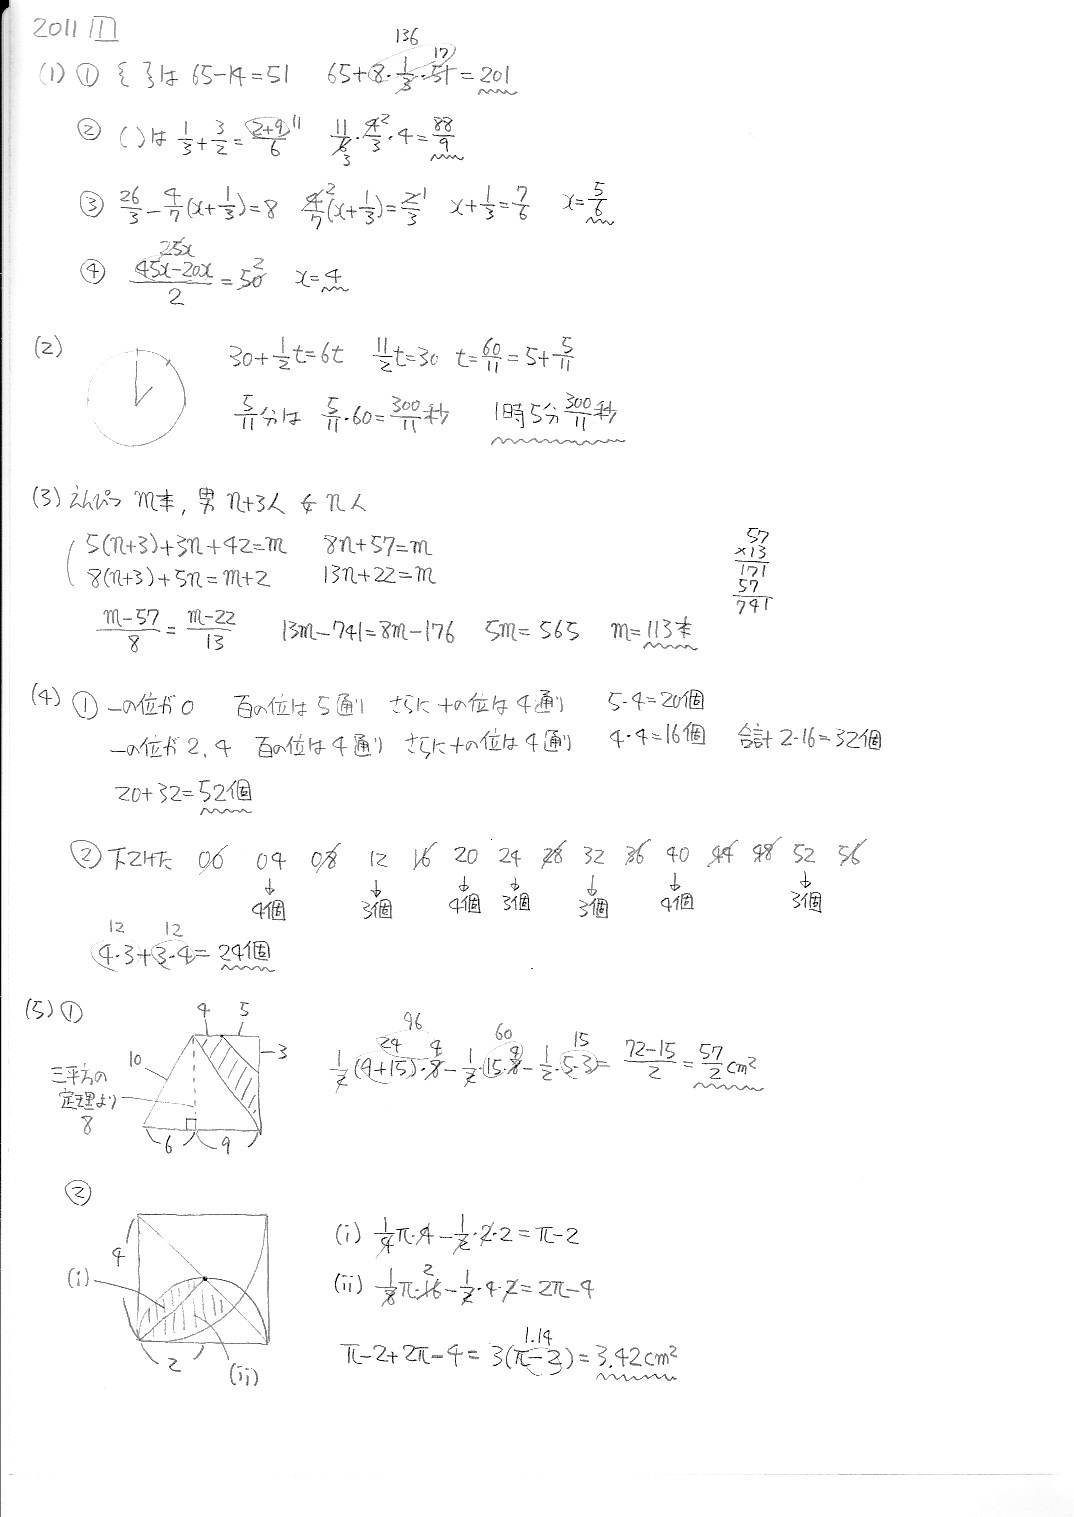 2011 1
(1) ① { }は 65-14=51 65+8・1/3・51=201
136 17
② ( )は 1/3+3/2=(2+9)/6 11 11/6・4/3・4=88/9
2 3
③ 26/3-4/7(x+1/3)=8 4/7(x+1/3)=2/3 x+1/3=7/6 x=5/6
2 1
25x
④ (45x-20x)/2=50 x=4
2
(2) 30+1/2t=6t 11/2t=30 t=60/11=5+5/11
5/11分は 5/11・60=300/11秒 1時5分300/11秒
(3) えんぴつ m本, 男 n+3人 女 n人
5(n+3)+3n+42=m 8n+57=m
8(n+3)+5n=m+2 13n+22=m
57
×13
171
57
741
(m-57)/8=(m-22)/13 13m-741=8m-176 5m=565 m=113本
(4) ① 一の位が0 百の位は5通り さらに十の位は4通り 5・4=20個
一の位が2,4 百の位は4通り さらに十の位は4通り 4・4=16個 合計2・16=32個
20+32=52個
② 下2けた 00 04 08 12 16 20 24 28 32 36 40 44 48 52 56
4個 3個 4個 3個 3個 4個 3個
12 12
4・3+3・4=24個
(5) ①
4 5
10 3
三平方の
定理より
8
6 9
96 60 15
24 4 4
1/2(9+15)・8-1/2・15・8-1/2・5・3=(72-15)/2=57/2cm²
②
4
(i)
2
(ii)
(i) 1/4π・4-1/2・2・2=π-2
(ii) 1/8π・16-1/2・4・2=2π-4
2
1.14
π-2+2π-4=3(π-2)=3.42cm²